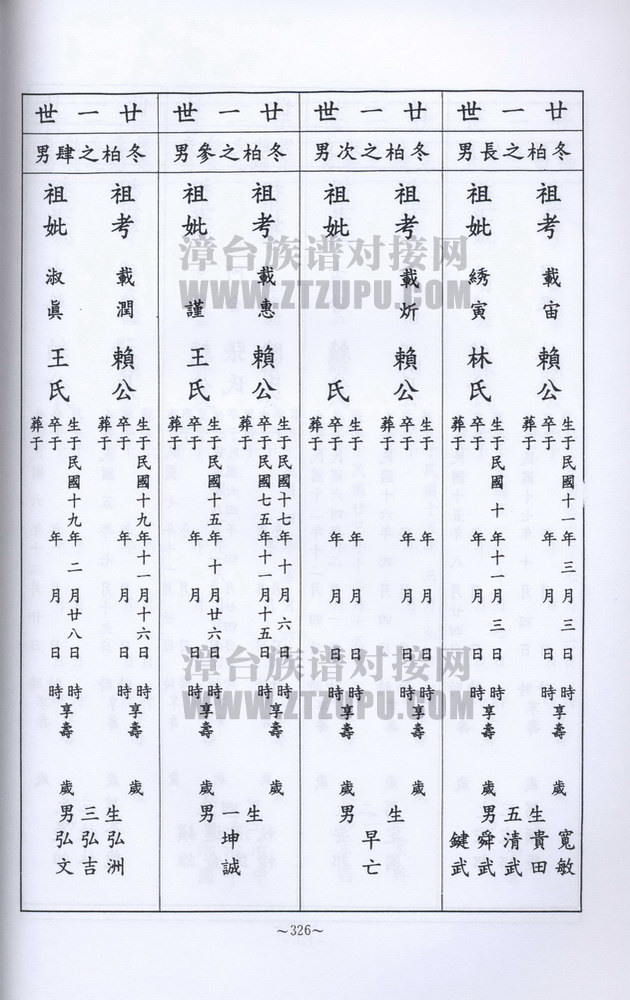 世一廿
男長之柏冬
祖考 載宙 賴公
生于民國十一年三月三日 時
卒于 年 月 日 時享壽 歲
葬于
祖妣 綉寅 林氏
生于民國 十年十一月三日 時
卒于 年 月 日 時享壽 歲
葬于
生五男
寬敏
貴田
清武
舜武
鍵武
世一廿
男次之柏冬
祖考 載炘 賴公
生于 年 月 日 時
卒于 年 月 日 時享壽 歲
葬于
祖妣 氏
生于 年 月 日 時
卒于 年 月 日 時享壽 歲
葬于
生 男
早亡
世一廿
男參之柏冬
祖考 載惠 賴公
生于民國十七年十月六日 時
卒于民國七五年十一月十五日 時享壽 歲
葬于
祖妣 謹 王氏
生于民國十五年十月廿六日 時
卒于 年 月 日 時享壽 歲
葬于
生一男
坤誠
世一廿
男肆之柏冬
祖考 載潤 賴公
生于民國十九年十一月十六日 時
卒于 年 月 日 時享壽 歲
葬于
祖妣 淑眞 王氏
生于民國十九年二月廿八日 時
卒于 年 月 日 時享壽 歲
葬于
生三男
弘洲
弘吉
弘文
漳台族谱对接网
WWW.ZTZUPU.COM
漳台族谱对接网
WWW.ZTZUPU.COM
~326~